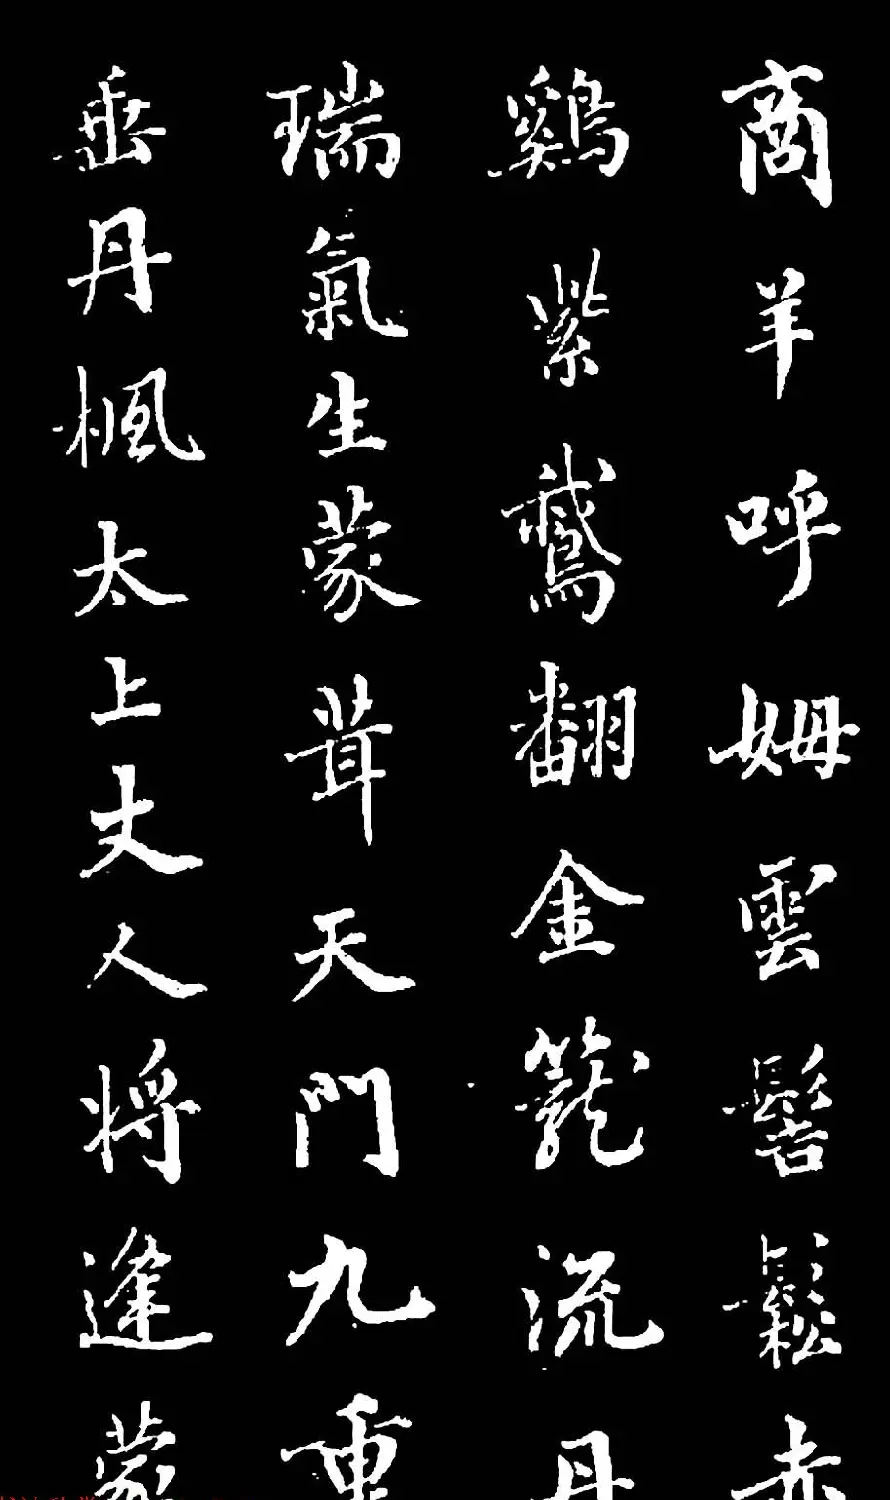 商羊呼姆雲髻鬆赤
鷄紫鵞翻金籠流丹
瑞氣生蒙茸天門九重
垂丹楓太上丈人將逢蒙